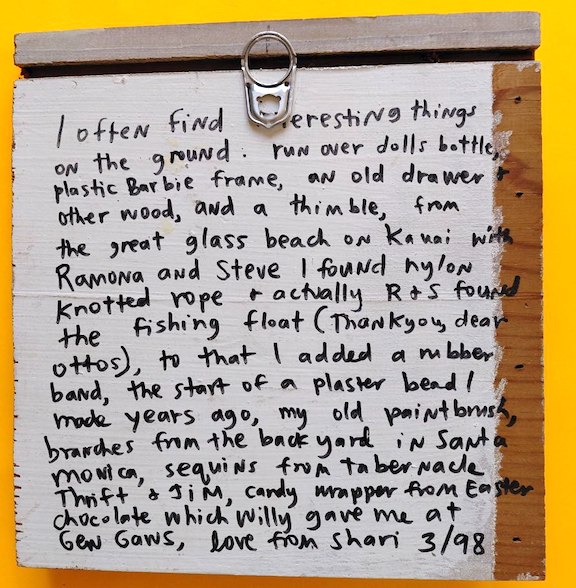 I often find eresting things
on the ground. run over dolls bottle,
plastic Barbie frame, an old drawer +
other wood, and a thimble, from
the great glass beach on Kauai with
Ramona and Steve I found nylon
Knotted rope + actually R+S found
the fishing float (Thankyou, dear
ottos), to that I added a rubber
band, the start of a plaster bead I
made years ago, my old paintbrush,
branches from the back yard in Santa
monica, sequins from tabernacle
Thrift + Jim, candy wrapper from Easter
chocolate which Willy gave me at
Gew Gaws, love from Shari 3/98